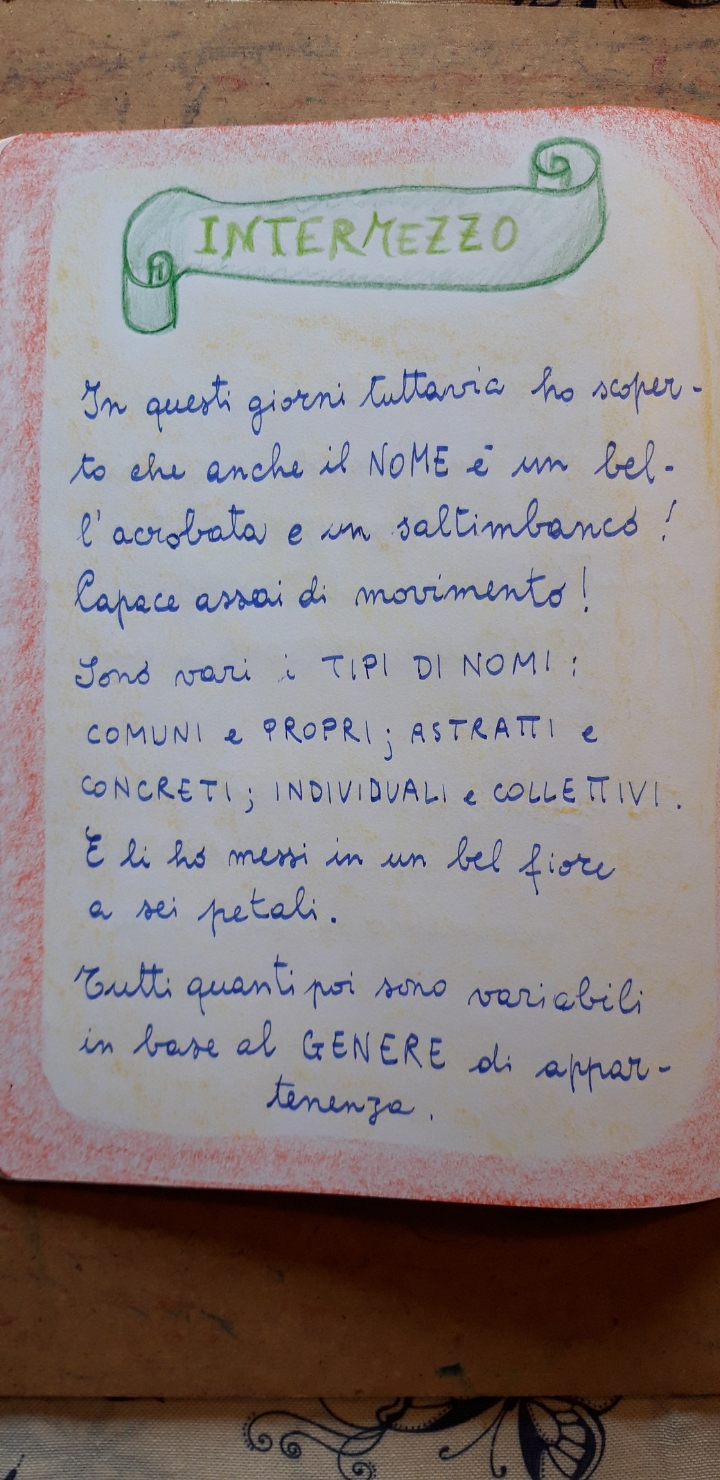 INTERMEZZO
In questi giorni tuttavia ho scoper-
to che anche il NOME è un bel-
l'acrobata e un saltimbanco!
Capace assai di movimento!
Sono vari i TIPI DI NOMI:
COMUNI e PROPRI; ASTRATTI e
CONCRETI; INDIVIDUALI e COLLETTIVI.
E li ho messi in un bel fiore
a sei petali.
Tutti quanti poi sono variabili
in base al GENERE di appar-
tenenza.